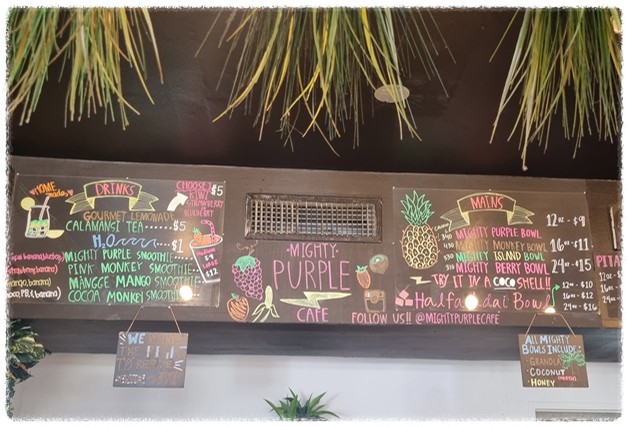 HOME made
DRINKS
CHOOSE!
KIWI
STRAWBERRY
BLUEBERRY
$5
GOURMET LEMONADE
CALAMANSI TEA.....$5
H2O $1
MIGHTY PURPLE SMOOTHIE
PINK MONKEY SMOOTHIE
MANGGE MANGO SMOOTHIE
COCOA MONKEY SMOOTHIE
$12
-MIGHTY-
PURPLE
CAFE
FOLLOW US!! @MIGHTYPURPLECAFE
MAINS
MIGHTY PURPLE BOWL
MIGHTY MONKEY BOWL
MIGHTY ISLAND BOWL
MIGHTY BERRY BOWL
12oz - $9
16oz - $11
24oz - $15
TRY IT IN A COCO SHELL!!
12oz - $10
16oz - $12
24oz - $16
WE
THE
ALL MIGHTY
BOWLS INCLUDE:
GRANOLA
COCONUT
HONEY